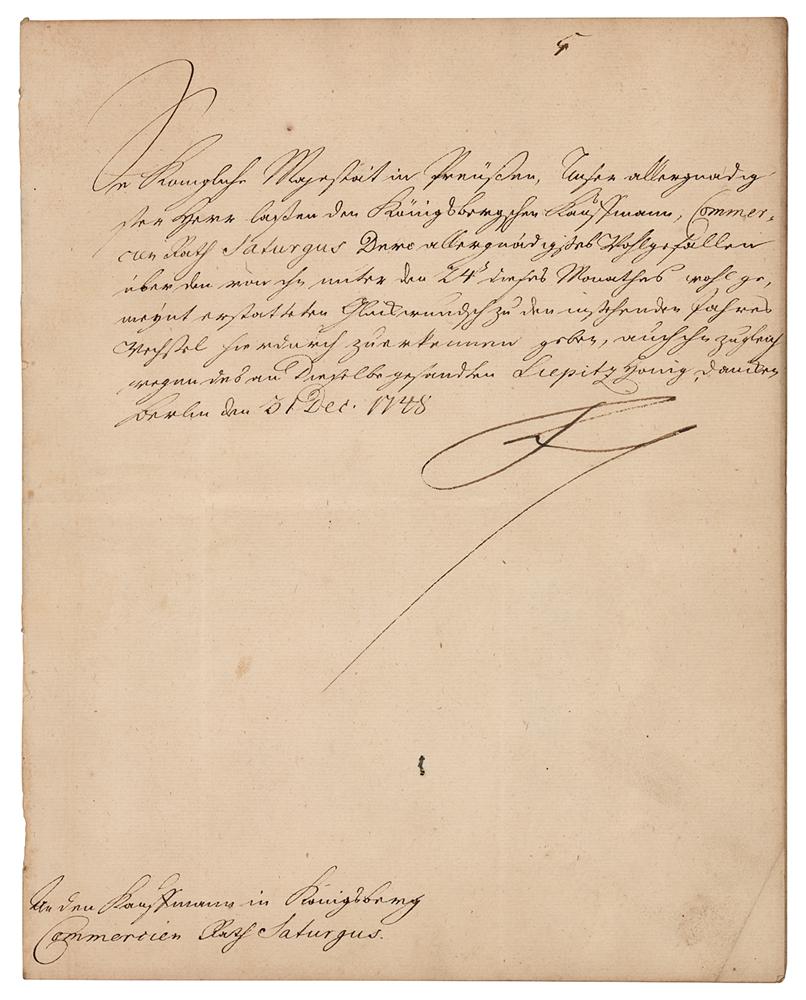 5
Se Königliche Majestät in Preüßen, Unser allergnädig-
ster Herr laßen den Königsbergschen Kauffmann, Commer-
cien Rath Saturgus Dero allergnädigstes Wohlgefallen
über den von ihm unter den 24t dieses Monathes wohl ge-
meynt erstatteten Glückwundsch zu den instehenden Jahres
Wechsel hierdurch zu erkennen geben, auch ihn zugleich
wegen des an Dieselbe gesandten Liepitz Honig, dancken
Berlin den 31 Dec. 1748
An den Kauffmann in Königsberg
Commercien Rath Saturgus.